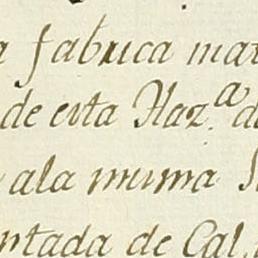 a fabrica mat
de esta Haz.ª de
ala misma S
ntada de Cal,